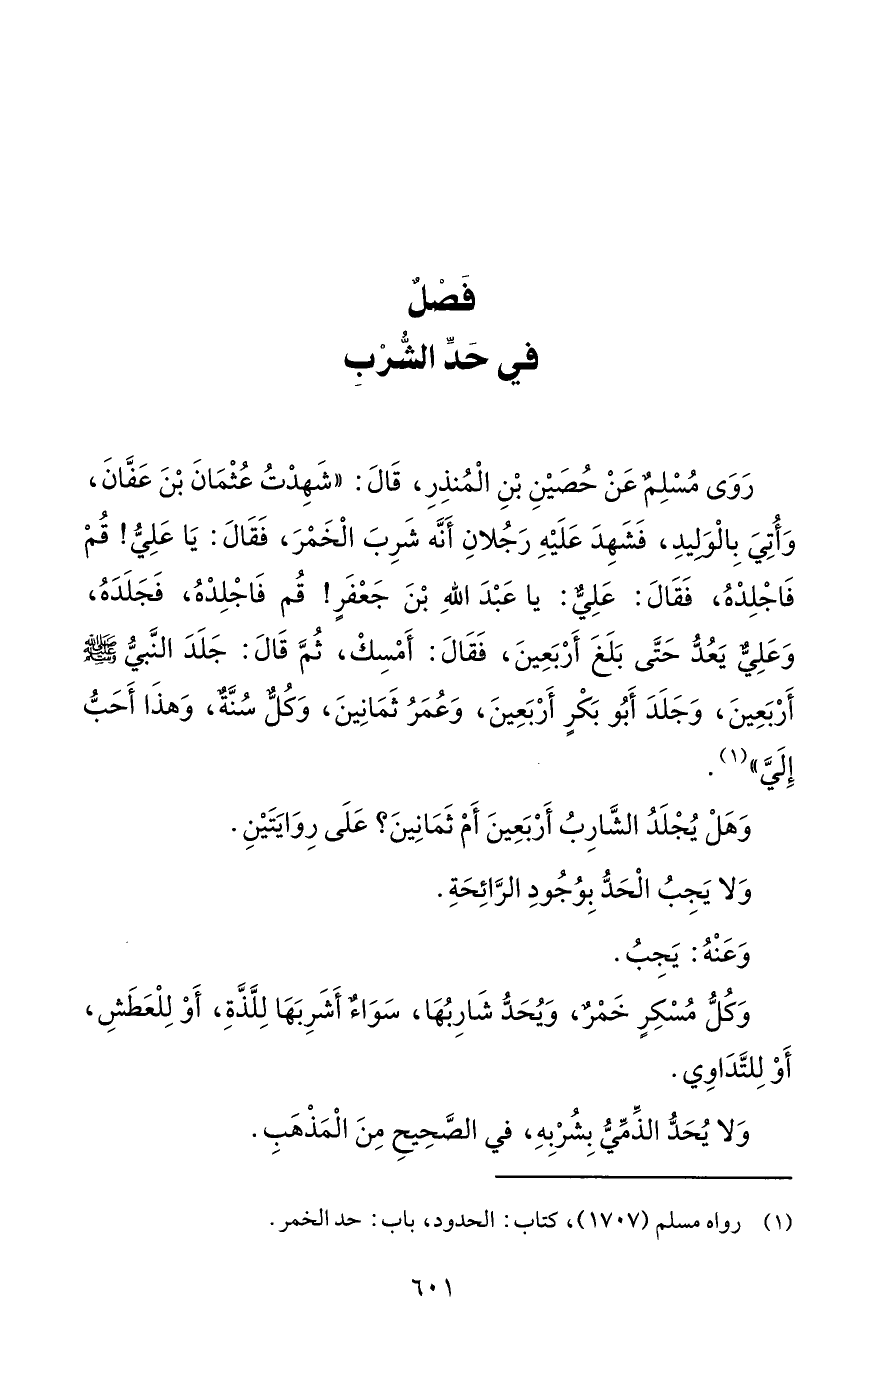 فَصْلٌ
في حَدِّ الشُّرْبِ
رَوَى مُسْلِمٌ عَنْ حُصَيْنِ بْنِ الْمُنذِرِ، قَالَ: «شَهِدْتُ عُثْمَانَ بْنَ عَفَّانَ،
وَأُتِيَ بِالْوَلِيدِ، فَشَهِدَ عَلَيْهِ رَجُلانِ أَنَّه شَرِبَ الْخَمْرَ، فَقَالَ: يَا عَلِيُّ! قُمْ
فَاجْلِدْهُ، فَقَالَ: عَلِيٌّ: يا عَبْدَ اللهِ بْنَ جَعْفَرٍ! قُم فَاجْلِدْهُ، فَجَلَدَهُ،
وَعَلِيٌّ يَعُدُّ حَتَّى بَلَغَ أَرْبَعِينَ، فَقَالَ: أَمْسِكْ، ثُمَّ قَالَ: جَلَدَ النَّبيُّ ﷺ
أَرْبَعِينَ، وَجَلَدَ أَبُو بَكْرٍ أَرْبَعِينَ، وَعُمَرُ ثَمَانِينَ، وَكُلٌّ سُنَّةٌ، وَهذَا أَحَبُّ
إِلَيَّ»(١).
وَهَلْ يُجْلَدُ الشَّارِبُ أَرْبَعِينَ أَمْ ثَمَانِينَ؟ عَلَى رِوَايَتَيْنِ.
وَلا يَجِبُ الْحَدُّ بِوُجُودِ الرَّائِحَةِ.
وَعَنْهُ: يَجِبُ.
وَكُلُّ مُسْكِرٍ خَمْرٌ، وَيُحَدُّ شَارِبُهَا، سَوَاءٌ أَشَرِبَهَا لِلَّذَّةِ، أَوْ لِلْعَطَشِ،
أَوْ لِلتَّدَاوِي.
وَلا يُحَدُّ الذِّمِّيُّ بِشُرْبِهِ، في الصَّحِيحِ مِنَ الْمَذْهَبِ.
(١) رواه مسلم (١٧٠٧)، كتاب: الحدود، باب: حد الخمر.
٦٠١